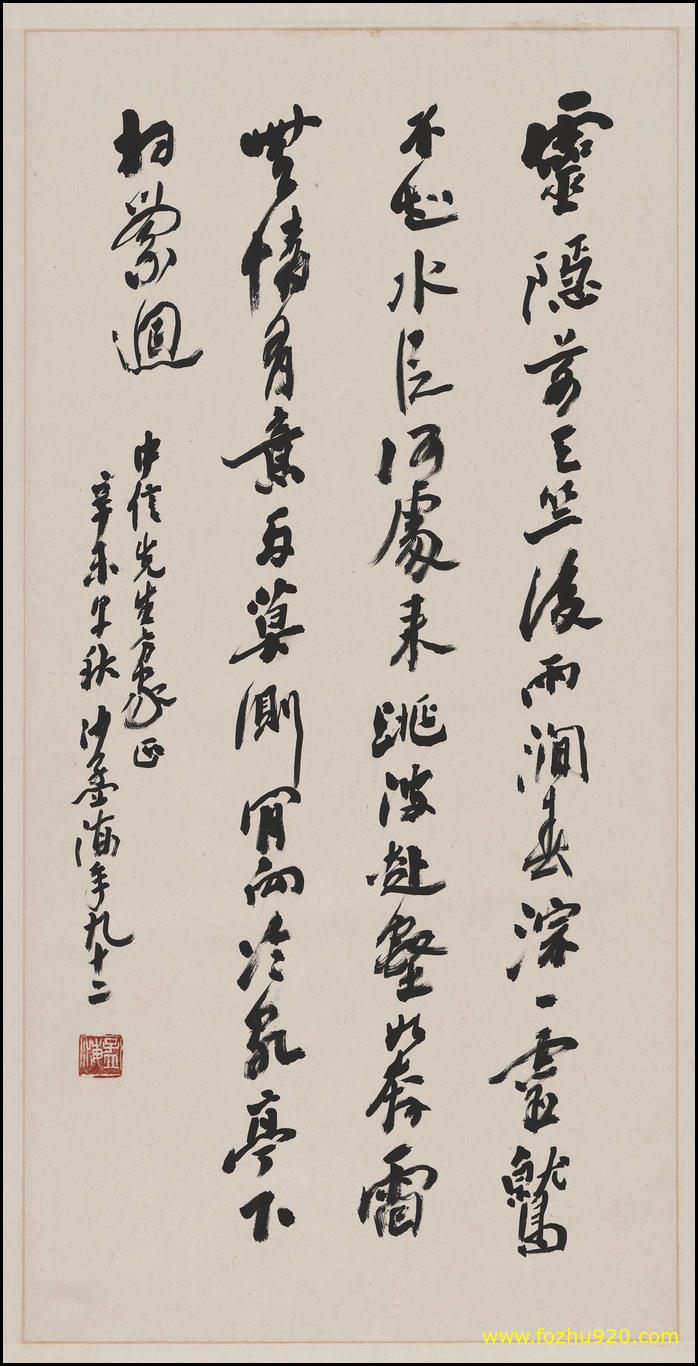 靈隱前天竺後兩澗春淙一靈鷲
不知水從何處來跳波赴壑如奔雷
無情有意兩莫測肯向冷泉亭下
相縈迴
中信先生方家正
辛未早秋 沙孟海年九十二
孟海
www.fozhu920.com